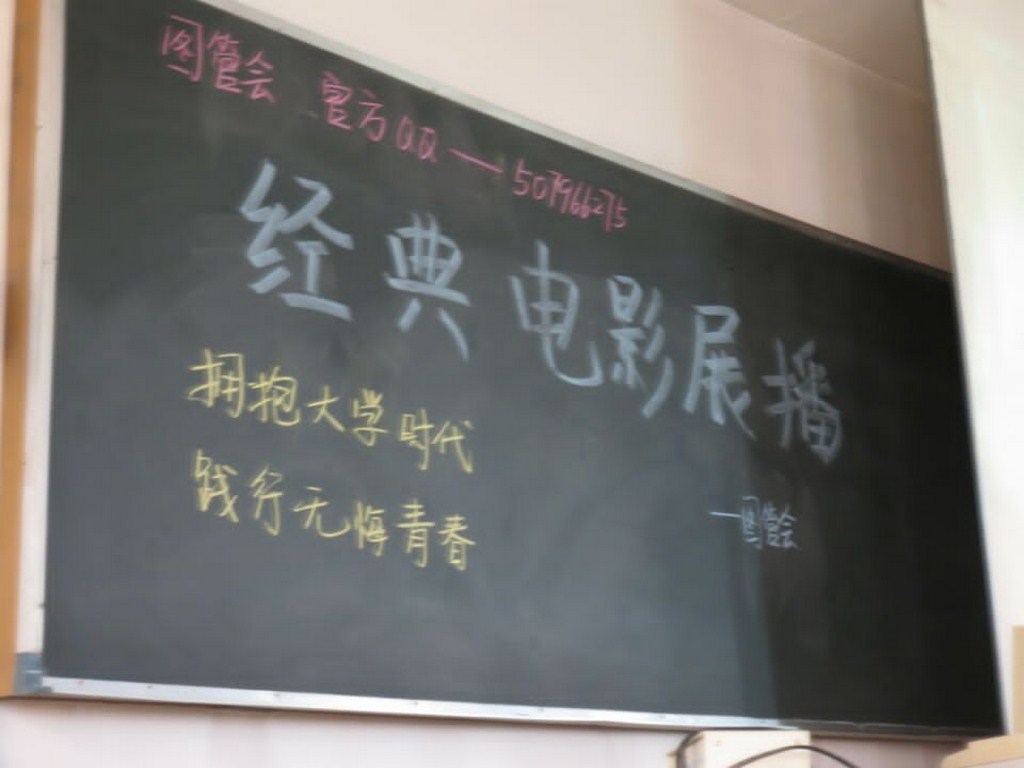 图管会 官方QQ——507966275
经典电影展播
拥抱大学时代
践行无悔青春
—图管会